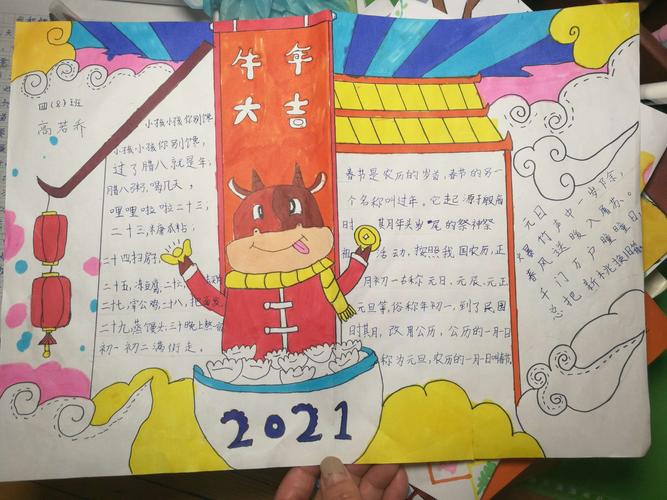 四（8）班
高若乔
小孩小孩你别馋
小孩小孩你别馋
过了腊八就是年，
腊八粥，喝几天，
哩哩啦啦二十三；
二十三，糖瓜粘；
二十四扫房
二十五，冻豆腐，二十六
二十七，宰公鸡，二十八，把面发
二十九蒸馒头，三十晚上熬一宿
初一初二满街走。
牛年
大吉
春节是农历的岁首，春节的另一
个名称叫过年。它起源于殷商
时期年头岁尾的祭神祭
祖活动，按照我国农历，正
月初一古称元日、元辰、元正
元旦等，俗称年初一，到了民国
时期，改用公历，公历的一月一日
称为元旦，农历的一月一日叫春节。
元日
爆竹声中一岁除，
春风送暖入屠苏。
千门万户曈曈日，
总把新桃换旧符
2021